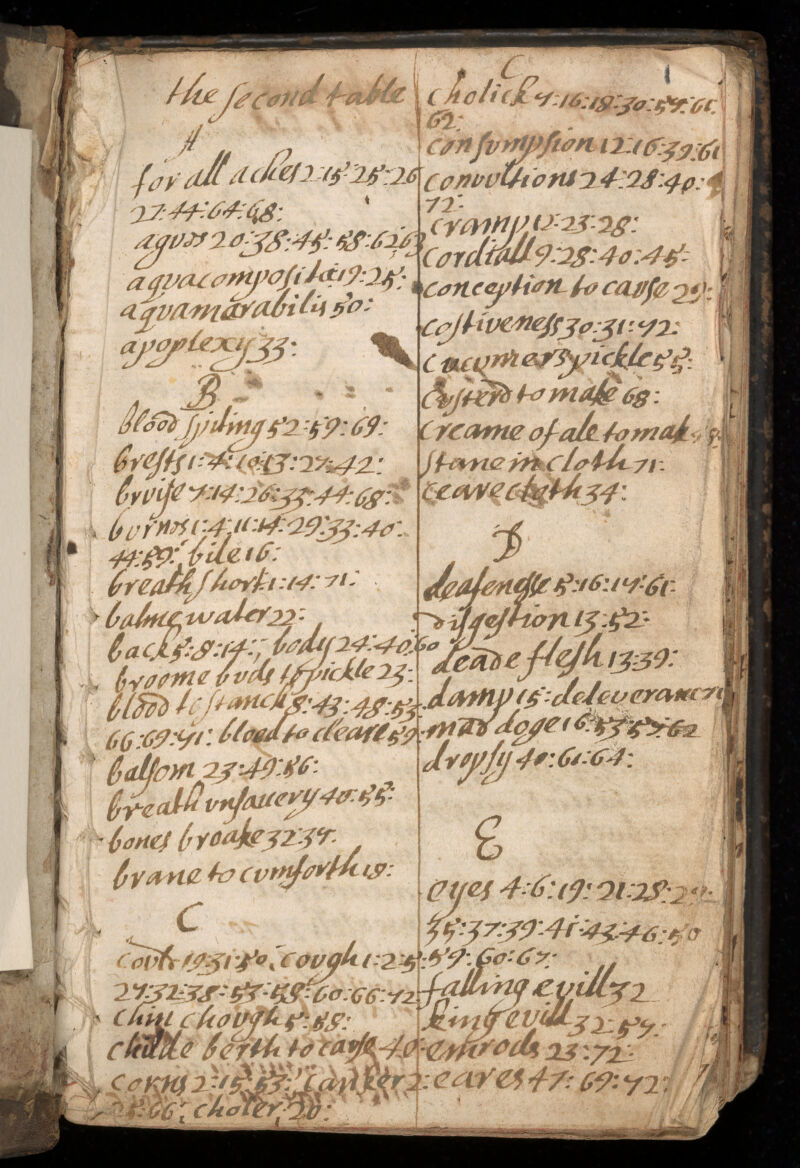 the second table
A
for all aches 2:15:25:26
27:44:64:68:
agvos 20:38:45:58:62:63
aqvacomposita 19:25:
aqvamarabilis 50:
apoplexy 33:
B
blood spiting 52:59:69:
brests 1:4:10:13:27:42:
brvise 7:14:26:33:44:68:
bvrnes 1:4:11:14:29:33:40:
44:59: bile 16:
breath short 1:14:71:
balme water 22:
back 5:8:14:, body 24:40:60
broome bvds to pickle 23:
blood to stanch 8:43:48:53
66:69:71: blood to cleare 59:
balsom 23:49:56:
breath vnsavery 40:55:
bones broake 32:37:
brane to cvmforth 18:
C
covlt 19:31:50, covgh 1:2:5:
27:32:38:53:58:60:66:72
chin chovgh 5:58:
childe berth to cavse 40:
corns 2:15:53: canker 2:
66; choler, 20:
C
1
cholick 7:16:18:30:57:61:
62:
consvmpsion 12:16:39:61
convvltions 24:28:40:
72:
cramp 12:23:28:
cordiall 9:28:40:45:
conception to cavse 29:
costiveness 30:31:72:
cvcvmers pickle 55:
cvsterd to make 68:
creame of ale to mak
stane in cloth 71:
ceare cloth 34:
D
deafengsse 5:16:17:61:
disgestion 13:52:
deade flesh 13:39:
damp 15: deleverance
mad doge 16:53:57:62
dropsy 40:61:64:
E
eyes 4:6:19:21:28:29:
35:37:39:41:43:46:50
59:60:67:
falling evill 32
king evill 32:57:
emrods 23:72:
eares 47:69:72: